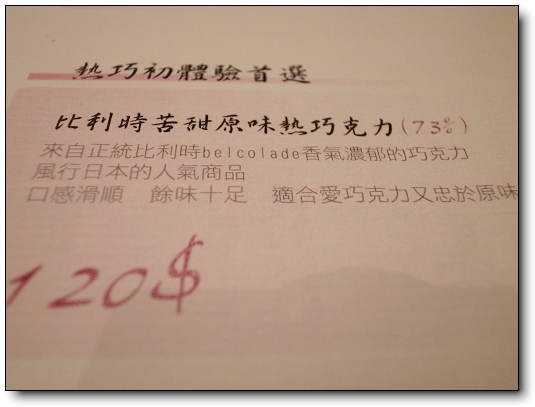 熱巧初體驗首選
比利時苦甜原味熱巧克力(73%)
來自正統比利時belcolade香氣濃郁的巧克力
風行日本的人氣商品
口感滑順　餘味十足　適合愛巧克力又忠於原味
120$